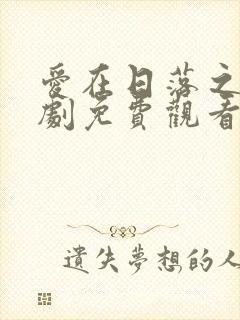 愛在日落之
劇免費觀看
遺失夢想的人